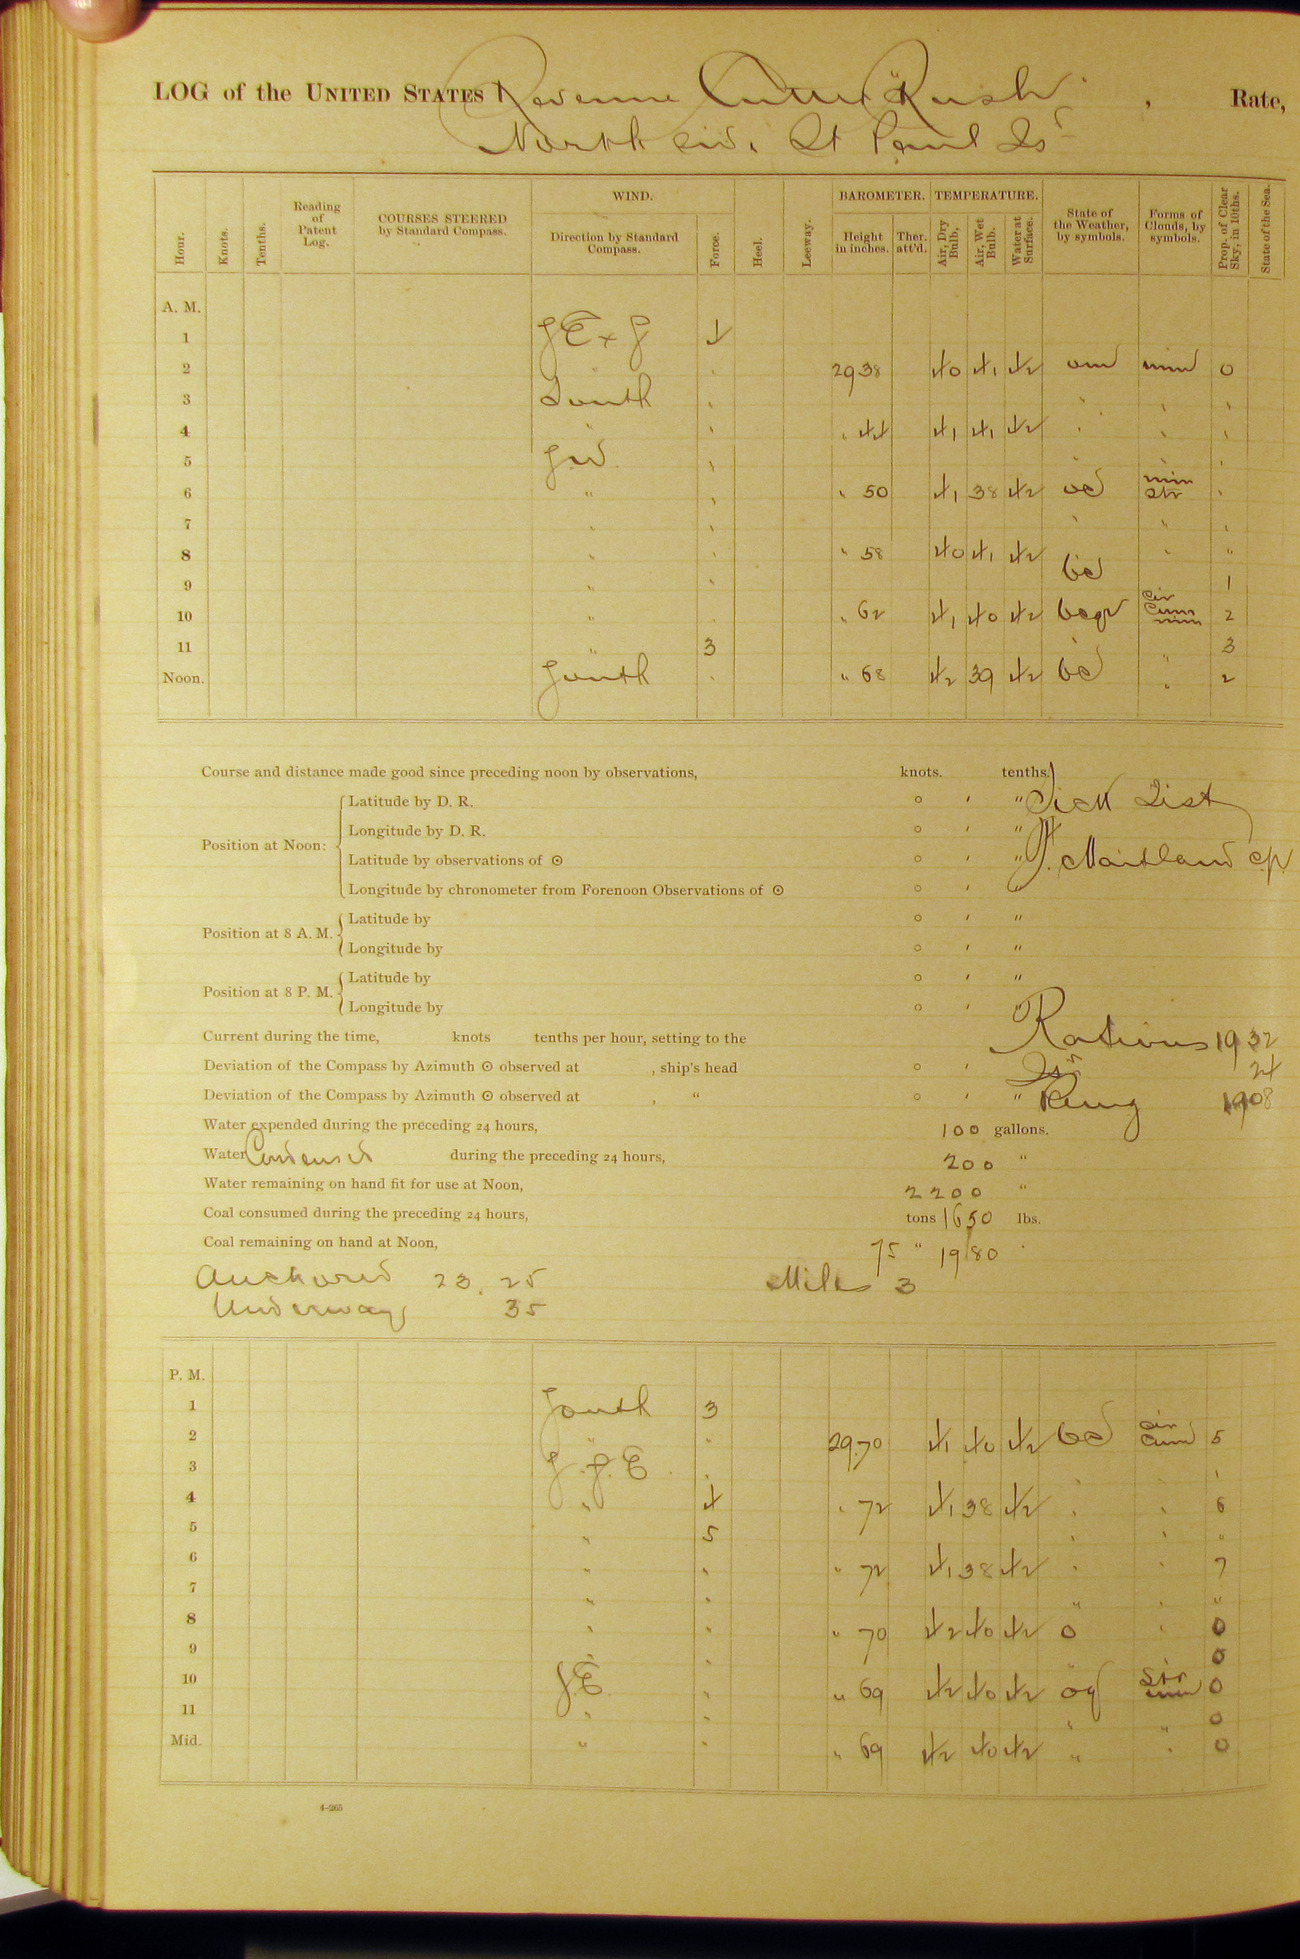 LOG of the UNITED STATES Revenue Cutter "Rush", Rate,
North side St Paul Isd
Hour. Knots. Tenths. Reading of Patent Log. COURSES STEERED by Standard Compass. WIND. Direction by Standard Compass. Force. Heel. Leeway. BAROMETER. Height in inches. Ther. att'd. TEMPERATURE. Air, Dry Bulb, Air, Wet Bulb. Water at Surface. State of the Weather, by symbols. Forms of Clouds, by symbols. Prop. of Clear Sky, in 10ths. State of the Sea.
A. M.
1 SE x S 4
2 " " 29 38 40 41 42 om nim 0
3 South " " " "
4 " " " 44 41 41 42 " " "
5 SW " " " "
6 " " " 50 41 38 42 oc nim str "
7 " " " " "
8 " " " 58 40 41 42 " "
9 " " bc 1
10 " " " 62 41 40 42 bcqr cir cum nim 2
11 " 3 " " 3
Noon. South " " 68 42 39 42 bc " 2
Course and distance made good since preceding noon by observations, knots. tenths.
Position at Noon:
Latitude by D. R. ° ′ ″ Sick List
Longitude by D. R. ° ′ ″
Latitude by observations of ☉ ° ′ ″ Maitland
Longitude by chronometer from Forenoon Observations of ☉ ° ′ ″
Position at 8 A. M.
Latitude by ° ′ ″
Longitude by ° ′ ″
Position at 8 P. M.
Latitude by ° ′ ″
Longitude by ° ′ ″
Current during the time, knots tenths per hour, setting to the Rations 1932
Deviation of the Compass by Azimuth ☉ observed at , ship's head ° ′ ″ Iss 24
Deviation of the Compass by Azimuth ☉ observed at , " ° ′ ″ Remg 1908
Water expended during the preceding 24 hours, 100 gallons.
Water Condensed during the preceding 24 hours, 200 "
Water remaining on hand fit for use at Noon, 2200 "
Coal consumed during the preceding 24 hours, tons 1650 lbs.
Coal remaining on hand at Noon, 75 " 1980 "
Anchored 23. 25 Miles 3
Underway 35
P. M.
1 South 3
2 " " 29.70 41 40 42 bc cir cum 5
3 S.S.E " " " "
4 " 4 " 72 41 38 42 " " 6
5 " 5 " " "
6 " " " 72 41 38 42 " " 7
7 " " " " "
8 " " " 70 42 40 42 o " 0
9 " " 0
10 SE " " 69 42 40 42 og Str 0
11 " " " " 0
Mid. " " " 69 42 40 42 " " 0
4-265